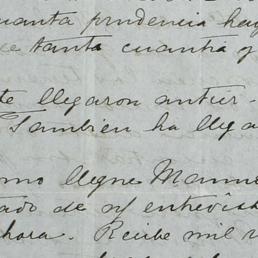 uanta prudencia hay
ce tanta cuanta q
te llegaron antier.
Tambien ha llega
omo llegue Manue
tado de n/ entrevis
ahora. Recibe mil